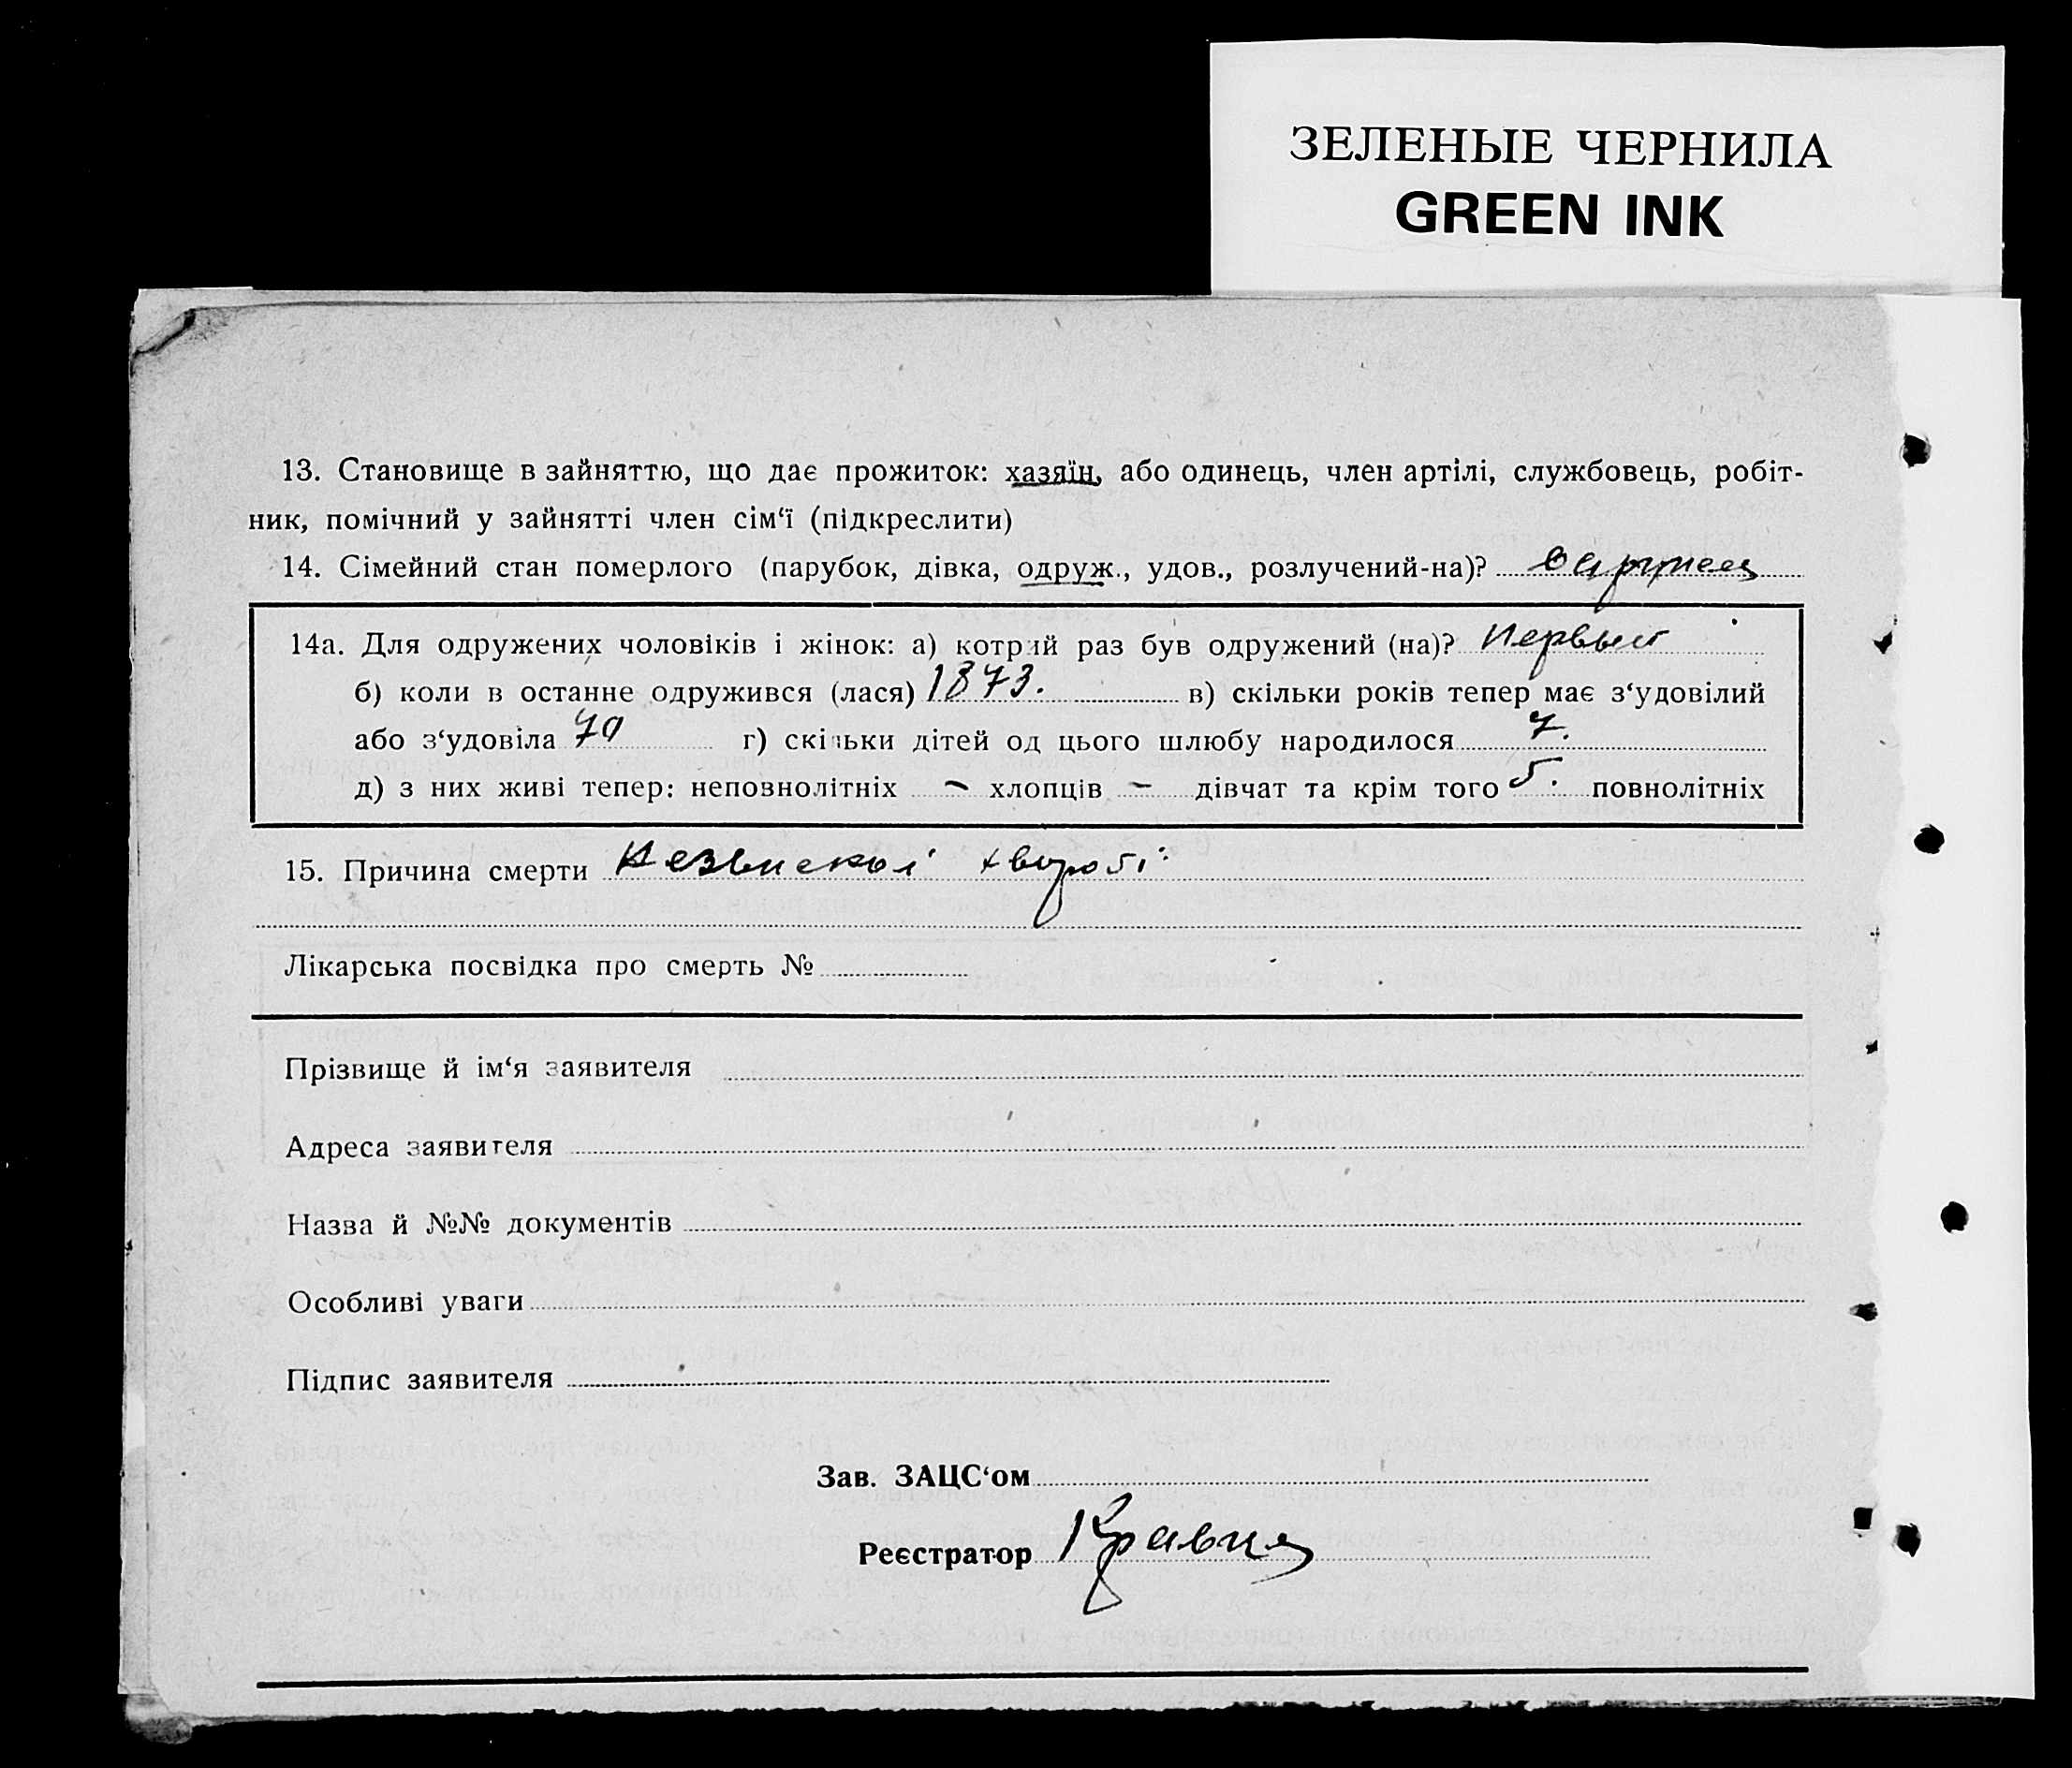 ЗЕЛЕНЫЕ ЧЕРНИЛА
GREEN INK
13. Становище в зайняттю, що дає прожиток: хазяїн, або одинець, член артілі, службовець, робіт-
ник, помічний у зайнятті член сім‘ї (підкреслити)
14. Сімейний стан померлого (парубок, дівка, одруж., удов., розлучений-на)?
14а. Для одружених чоловіків і жінок: а) котрий раз був одружений (на)? Первый
б) коли в останнє одружився (лася) 1873. в) скільки років тепер має з‘удовілий
або з‘удовіла 70 г) скільки дітей од цього шлюбу народилося 7.
д) з них живі тепер: неповнолітніх – хлопців – дівчат та крім того 5. повнолітніх
15. Причина смерти хворобі
Лікарська посвідка про смерть №
Прізвище й ім‘я заявителя
Адреса заявителя
Назва й №№ документів
Особливі уваги
Підпис заявителя
Зав. ЗАЦС‘ом
Реєстратор Кравец